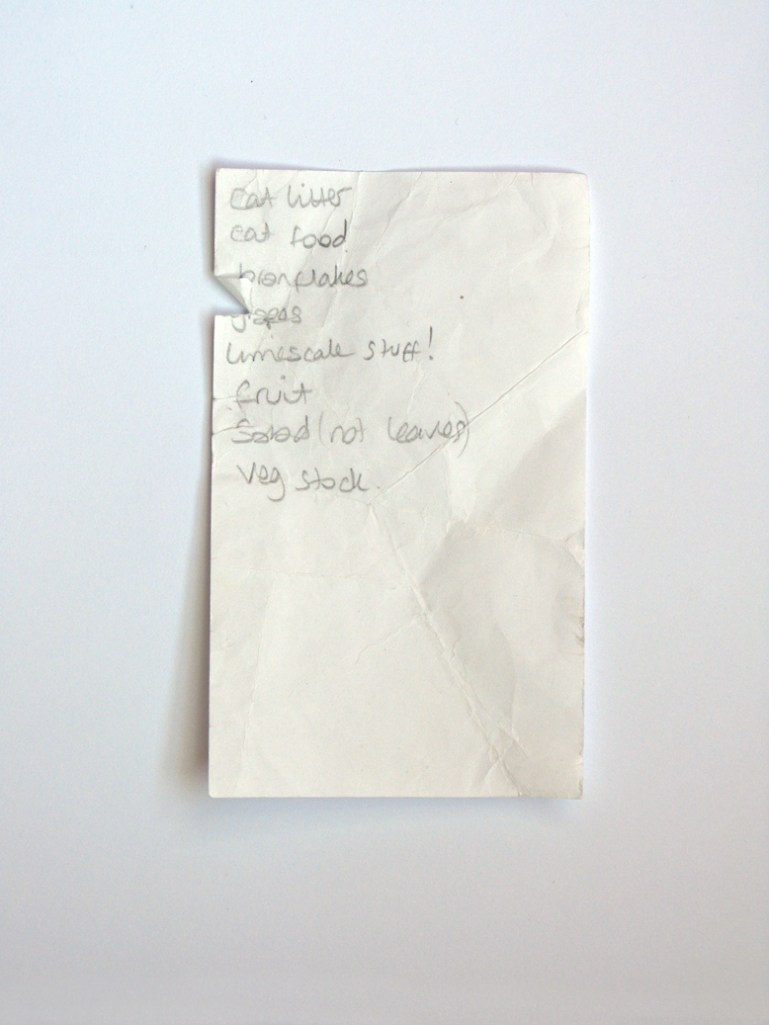 cat litter
cat food
branflakes
limescale stuff!
fruit
Salad (not leaves)
Veg stock.